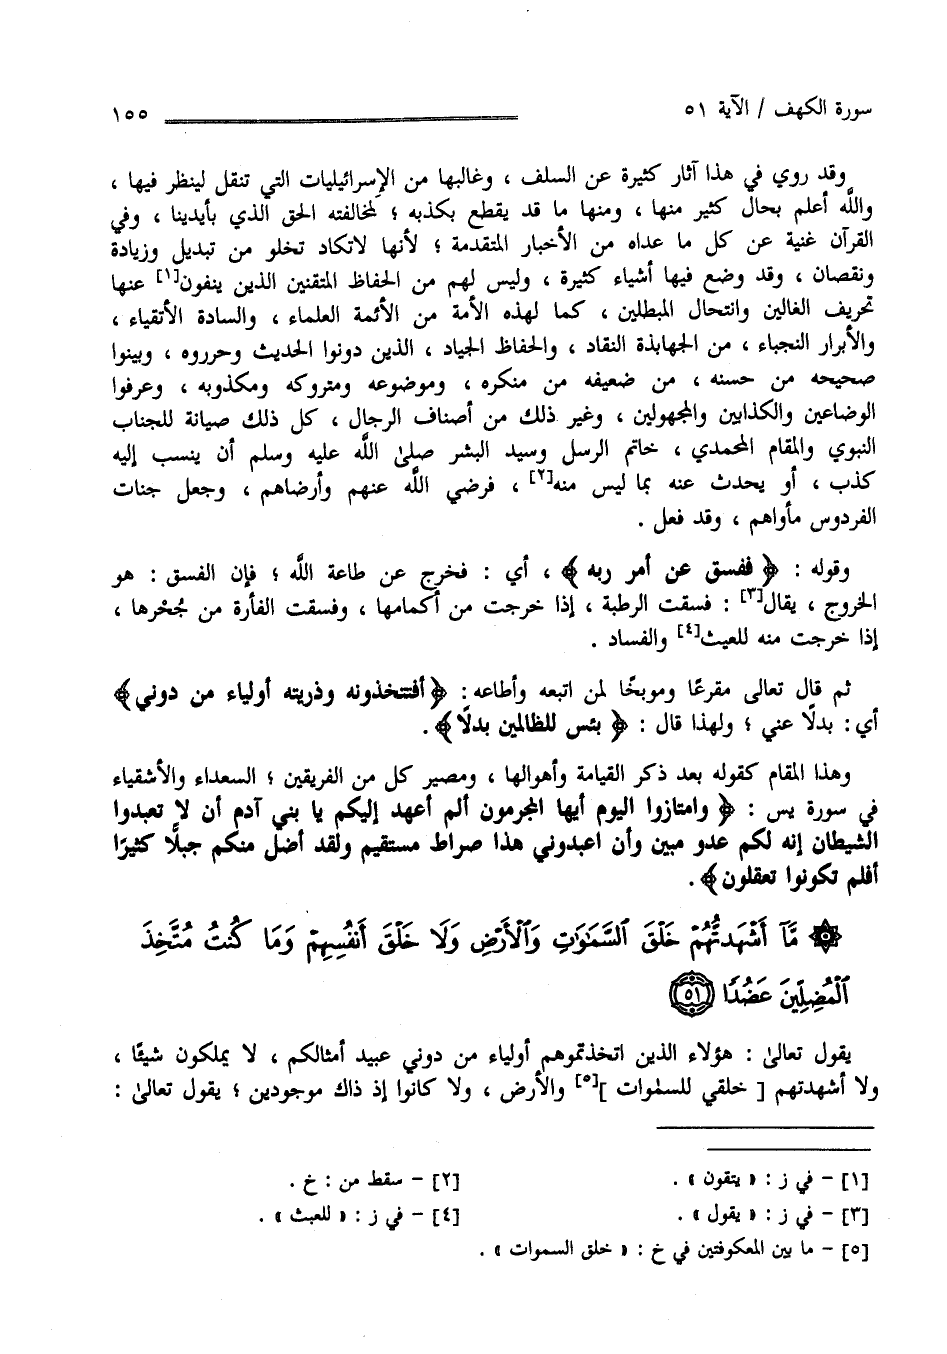 سورة الكهف / الآية ٥١ ١٥٥
وقد روي في هذا آثار كثيرة عن السلف ، وغالبها من الإسرائيليات التي تنقل لينظر فيها ،
واللَّه أعلم بحال كثير منها ، ومنها ما قد يقطع بكذبه ؛ لمخالفته الحق الذي بأيدينا ، وفي
القرآن غنية عن كل ما عداه من الأخبار المتقدمة ؛ لأنها لاتكاد تخلو من تبديل وزيادة
ونقصان ، وقد وضع فيها أشياء كثيرة ، وليس لهم من الحفاظ المتقنين الذين ينفون[١] عنها
تحريف الغالين وانتحال المبطلين ، كما لهذه الأمة من الأئمة العلماء ، والسادة الأتقياء ،
والأبرار النجباء ، من الجهابذة النقاد ، والحفاظ الجياد ، الذين دونوا الحديث وحرروه ، وبينوا
صحيحه من حسنه ، من ضعيفه من منكره ، وموضوعه ومتروكه ومكذوبه ، وعرفوا
الوضاعين والكذابين والمجهولين ، وغير ذلك من أصناف الرجال ، كل ذلك صيانة للجناب
النبوي والمقام المحمدي ، خاتم الرسل وسيد البشر صلىٰ اللَّه عليه وسلم أن ينسب إليه
كذب ، أو يحدث عنه بما ليس منه[٢] ، فرضي اللَّه عنهم وأرضاهم ، وجعل جنات
الفردوس مأواهم ، وقد فعل .
وقوله : ﴿ ففسق عن أمر ربه ﴾ ، أي : فخرج عن طاعة اللَّه ؛ فإن الفسق : هو
الخروج ، يقال[٣] : فسقت الرطبة ، إذا خرجت من أكمامها ، وفسقت الفأرة من جُحْرها ،
إذا خرجت منه للعيث[٤] والفساد .
ثم قال تعالى مقرعًا وموبخًا لمن اتبعه وأطاعه: ﴿ أفتتخذونه وذريته أولياء من دوني ﴾
أي: بدلًا عني ؛ ولهذا قال : ﴿ بئس للظالمين بدلًا ﴾ .
وهذا المقام كقوله بعد ذكر القيامة وأهوالها ، ومصير كل من الفريقين ؛ السعداء والأشقياء
في سورة يس : ﴿ وامتازوا اليوم أيها المجرمون ألم أعهد إليكم يا بني آدم أن لا تعبدوا
الشيطان إنه لكم عدو مبين وأن اعبدوني هذا صراط مستقيم ولقد أضل منكم جبلًّا كثيرًا
أفلم تكونوا تعقلون ﴾ .
۞ مَّآ أَشْهَدتُّهُمْ خَلْقَ ٱلسَّمَٰوَٰتِ وَٱلْأَرْضِ وَلَا خَلْقَ أَنفُسِهِمْ وَمَا كُنتُ مُتَّخِذَ
ٱلْمُضِلِّينَ عَضُدًا ﴿٥١﴾
يقول تعالىٰ : هؤلاء الذين اتخذتموهم أولياء من دوني عبيد أمثالكم ، لا يملكون شيئًا ،
ولا أشهدتهم [ خلقي للسمٰوات ][٥] والأرض ، ولا كانوا إذ ذاك موجودين ؛ يقول تعالىٰ :
[١] – في ز : « يتقون » . [٢] – سقط من : خ .
[٣] – في ز : « يقول » . [٤] – في ز : « للعبث » .
[٥] – ما بين المعكوفتين في خ : « خلق السموات » .